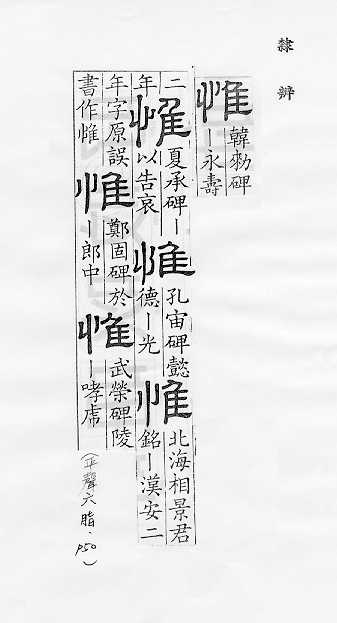 隸辨
惟 韓勑碑ー永壽
二年 惟 夏承碑ー以告哀 惟 孔宙碑懿德ー光 惟 北海相景君銘ー漢安二
年字原誤書作惟 惟 鄭固碑於ー郎中 惟 武榮碑陵ー哮虎
(平聲六脂·P50)